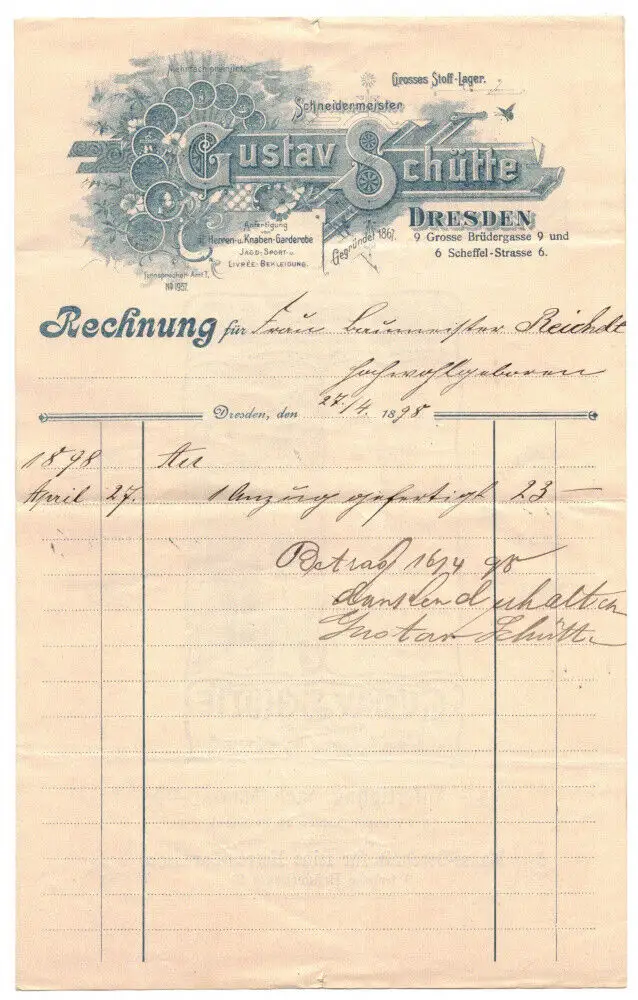 Mehrfach prämiirt.
Grosses Stoff-Lager.
Schneidermeister
Gustav Schütte
Dresden
9 Grosse Brüdergasse 9 und
6 Scheffel-Strasse 6.
Anfertigung
von
Herren- u. Knaben-Garderobe
Jagd-, Sport- u.
Livrée-Bekleidung.
Gegründet 1867.
Fernsprecher Amt I,
No 1957.
Rechnung für Frau Baumeister Reichelt
Hochwohlgeboren
Dresden, den 27./4. 1898
1898 An
April 27. 1 Anzug gefertigt 23 —
Betrag 16/4 98
dankend erhalten
Gustav Schütte